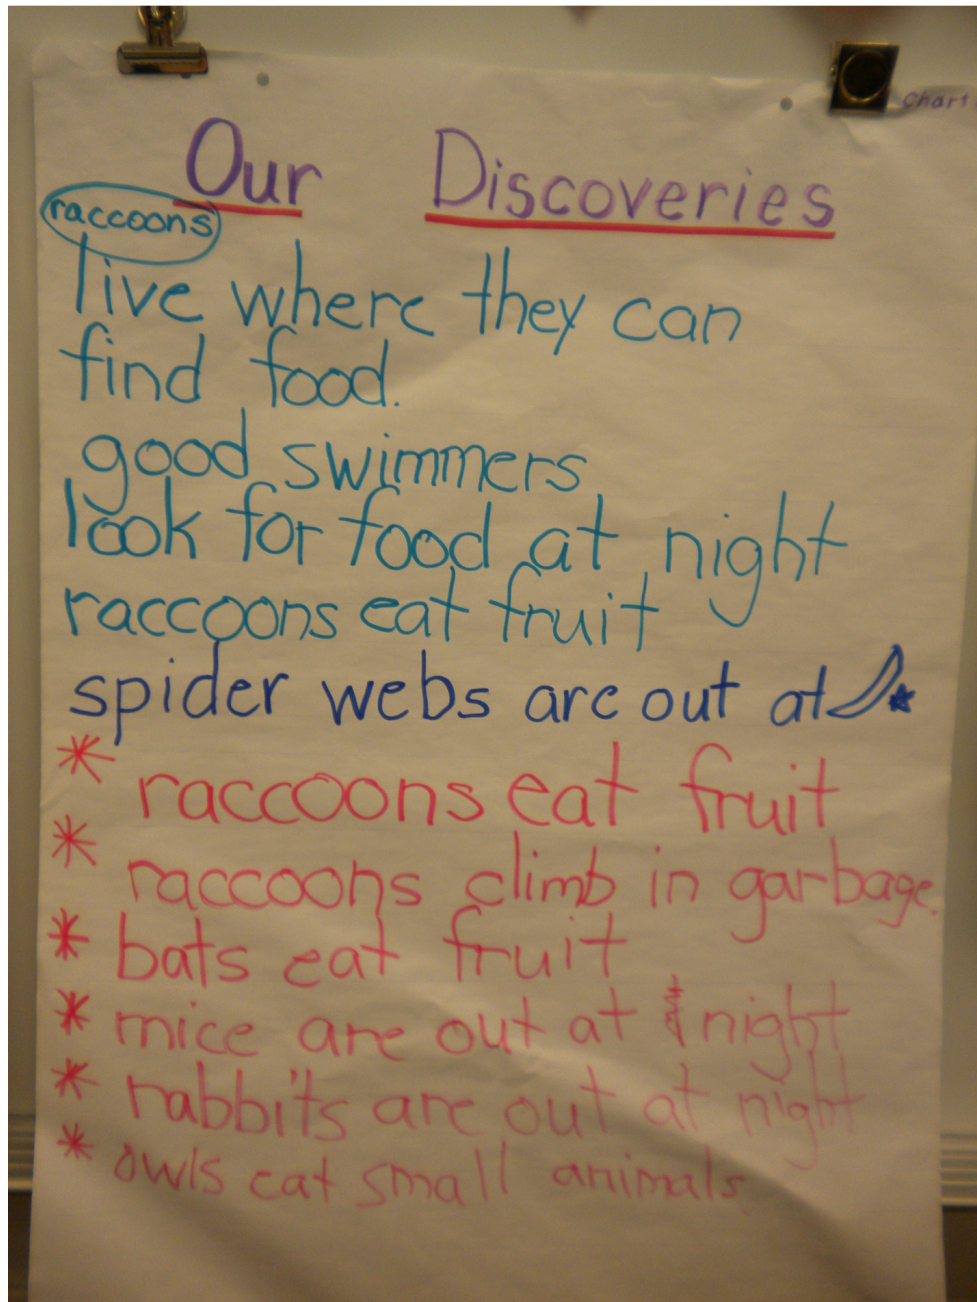 Chart
Our Discoveries
raccoons
live where they can
find food.
good swimmers
look for food at night
raccoons eat fruit
spider webs are out at
* raccoons eat fruit
* raccoons climb in garbage.
* bats eat fruit
* mice are out at night
* rabbits are out at night
* owls eat small animals